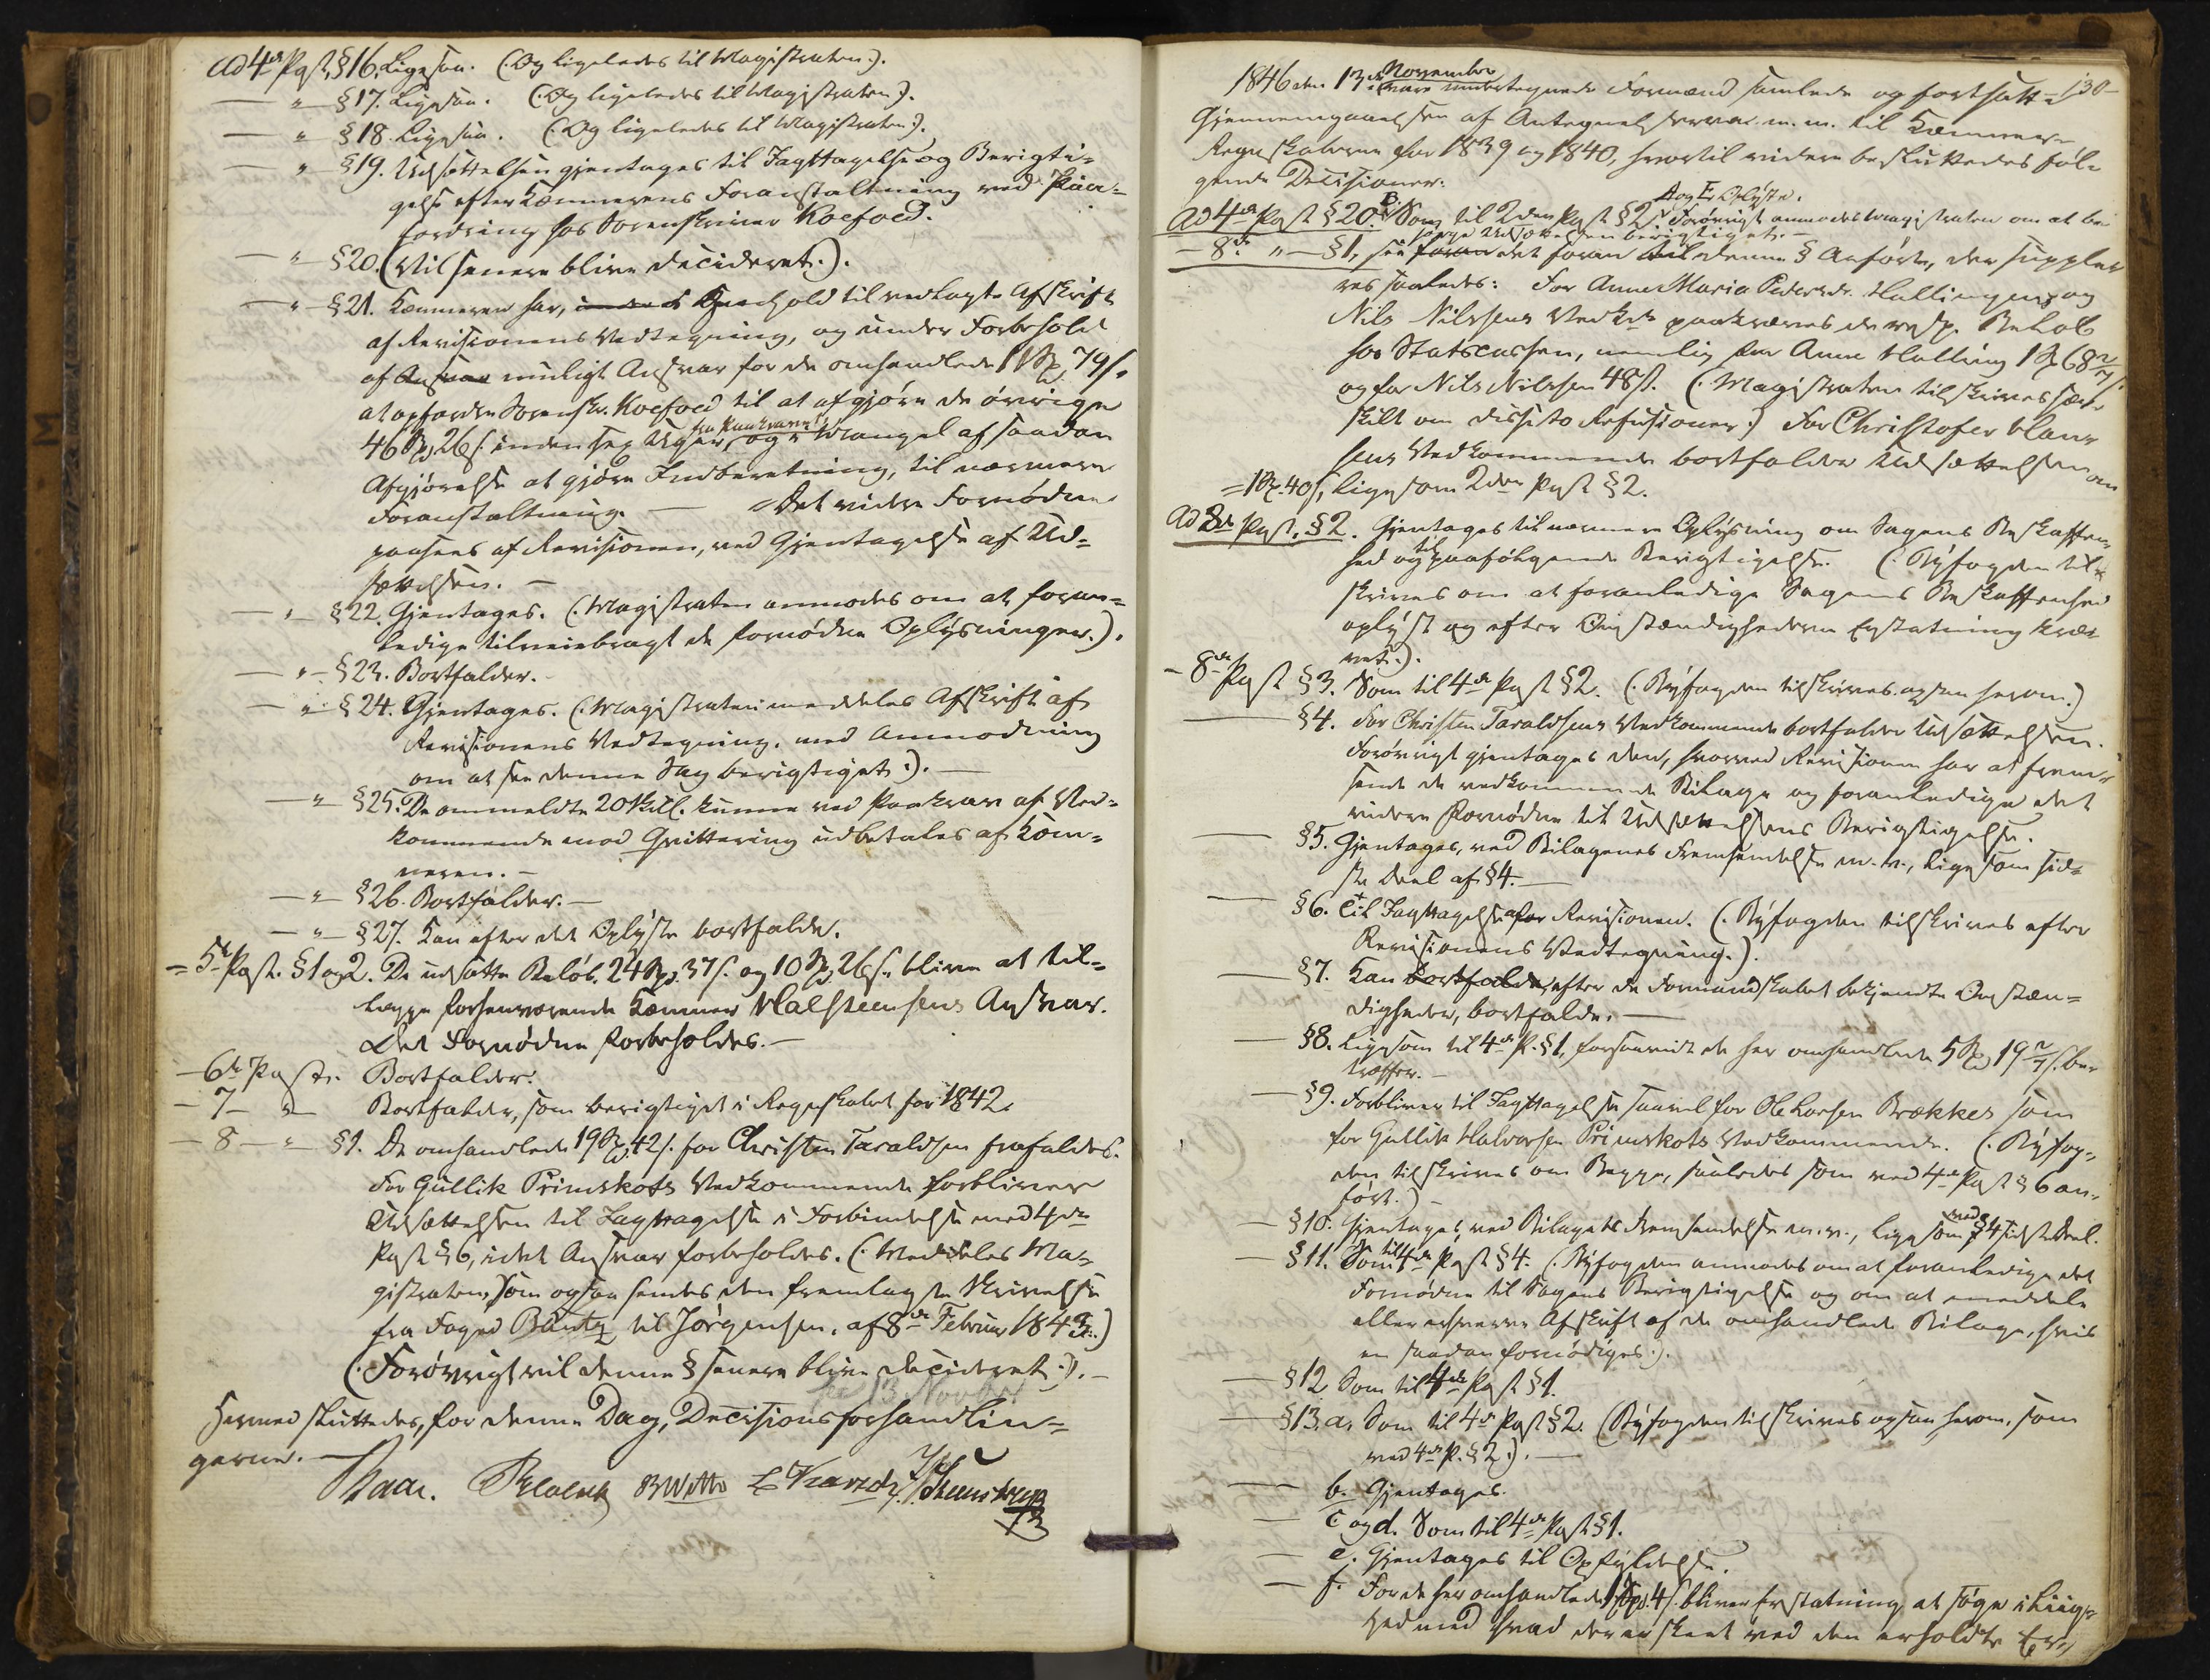 ad 4de Post, § 16. Ligesaa. (: Og ligeledes til Magistraten :).
— " — § 17. Ligesaa. (: Og ligeledes til Magistraten :).
— " — § 18. Ligesaa. (: Og ligeledes til Magistraten :).
— " — § 19. Udsættelsen gjentages til Iagttagelse og Berigti-
gelse efter Kæmnerens Foranstaltning ved Paa-
fordring hos Sorenskriver Koefoed.
— " — § 20. (Vil senere blive decideret :).
— " — § 21. Kæmneren har, i Henhold til vedlagte Afskrift
af Revisionens Vedtegning, og under Forbehold
af Ansvar muligt Ansvar for de omhandlede 11 Spd 79 s.
at opfordre Sorenskr. Koefoed til at afgjøre de øvrige
46 Spd 26 s. inden sex Uger fra Paakravet, og i Mangel af saadan
Afgjørelse at gjøre Indberetning, til nærmere
Foranstaltning. — Det videre Fornødne
paasees af Revisionen, ved Gjentagelse af Ud-
sættelsen. —
— " — § 22. Gjentages. (: Magistraten anmodes om at foran-
ledige tilveiebragt de fornødne Oplysninger :).
— " — § 23. Bortfalder.
— " — § 24. Gjentages. (: Magistraten meddeles Afskrift af
Revisionens Vedtegning, med Anmodning
om at see denne Sag berigtiget :). —
— " — § 25. De ommeldte 20 Skill. kunne ved Paakrav af Ved-
kommende mod Qvittering udbetales af Kæm-
neren. —
— " — § 26. Bortfalder. —
— " — § 27. Kan efter det Oplyste bortfalde.
— 5te Post. § 1 og 2. De udsatte Beløb, 24 Spd. 37 s. og 10 Spd 26 s. blive at til-
lægge forhenværende Kæmner Halsteensens Ansvar.
Det Fornødne forbeholdes. —
— 6te Post. Bortfalder.
— 7 — " — Bortfalder, som berigtiget i Regnskabet for 1842.
— 8 — " — § 1. De omhandlede 19 Spd 42 s. for Christen Taraldsen frafaldes.
For Gullik Primskots Vedkommende forbliver
Udsættelsen til Iagttagelse i Forbindelse med 4de
Post § 6, idet Ansvar forbeholdes. (: Meddeles Ma-
gistraten, som ogsaa sendes den fremlagte Skrivelse
fra Foged Buntz til Jørgensen, af 8de Februar 1843 :)
(: Forøvrigt vil denne § senere blive decideret :). —
See 13 Novbr
Hermed sluttedes, for denne Dag, Decisionsforhandlin-
gerne. —
BWitte
130
1846 den 13de November vare undertegnede Formænd samlede og fortsatte
Gjennemgaaelsen af Antegnelserne m. m. til Kæmner-
Regnskaberne for 1839 og 1840, hvortil videre besluttedes føl-
gende Decisioner:
ad 4de Post § 20. B. Som til 2den Post § 2. A og E Oplyste. Forøvrigt anmodes Magistraten om at be-
sørge Udsættelsen berigtiget. —
— 8de " — § 1, see foran det foran til denne § Anførte, der supple-
res saaledes: For Anne Maria Pedersdr. Hallingens og
Nils Nilssens Vedk. paakræves de resp. Beløb
hos Statscassen, nemlig for Anne Halling 1 Spd 68 2/7 s.
og for Nils Nilssen 48 s. (: Magistraten tilskrives sær-
skilt om disse to Refusioner :) For Christofer Han-
sens Vedkommende bortfalder Udsættelsen om
1 Spd. 40 s., ligesom 2den Post § 2.
ad 8de Post, § 2. Gjentages til nærmere Oplysning om Sagens Beskaffen-
hed og til paafølgende Berigtigelse. (: Byfogden til-
skrives om at foranledige Sagens Beskaffenhed
oplyst og efter Omstændighederne Erstatning kræ-
vet :).
— 8de Post § 3. Som til 4de Post § 2. (: Byfogden tilskrives ogsaa herom :)
— § 4. For Christen Taraldsens Vedkommende bortfalder Udsættelsen.
Forøvrigt gjentages den, hvorved Revisionen har at frem-
sende de vedkommende Bilage og foranledige det
videre Fornødne til Udsættelsens Berigtigelse.
— § 5. Gjentages, ved Bilagenes Fremsendelse m. v., ligesom sid-
ste Deel af § 4. —
— § 6. Til Iagttagelse for Revisionen. (: Byfogden tilskrives efter
Revisionens Vedtegning :).
— § 7. Kan bortfalde efter de Formandskabet bekjendte Omstæn-
digheder, bortfalde. —
— § 8. Ligesom til 4de P. § 1, forsaavidt de her omhandlede 5 Spd 19 2/7 s. be-
træffer. —
— § 9. Forbliver til Iagttagelse saavel for Ole Larsen Brækkes som
for Gullik Halvorsen Primskots Vedkommende. (: Byfog-
den tilskrives om Begge, saaledes som ved 4de Post § 6 an-
ført :) —
— § 10. Gjentages, ved Bilagets Fremsendelse m. v., ligesom ved § 4 sidste Deel.
— § 11. Som til 4de Post § 4. (: Byfogden anmodes om at foranledige det
Fornødne til Sagens Berigtigelse og om at meddele
eller erhverve Afskrift af de omhandlede Bilage, hvis
en saadan fornødiges :).
— § 12 Som til 4de Post § 1.
— § 13. a. Som til 4de Post § 2. (: Byfogden tilskrives ogsaa herom, som
ved 4de P. § 2 :). —
— b. Gjentages.
— c og d. Som til 4de Post § 1.
— e. Gjentages til Opfyldelse.
— f. For de her omhandlede 1 Spd. 4 s. bliver Erstatning at søge i Liig-
hed med hvad der er skeet ved den erholdte Er-